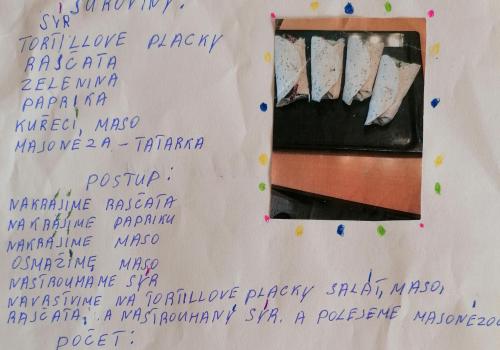 SUROVINY:
SÝR
TORTILLOVE PLACKY
RAJČATA
ZELENINA
PAPRIKA
KUŘECÍ MASO
MAJONÉZA - TATARKA
POSTUP:
NAKRÁJÍME RAJČATA
NAKRÁJÍME PAPRIKU
NAKRÁJÍME MASO
OSMAŽÍME MASO
NASTROUHAME SÝR
NAVRSTVÍME NA TORTILLOVE PLACKY SALÁT, MASO,
RAJČATA, A NASTROUHANÝ SÝR. A POLEJEME MAJONÉZOU
POČET: